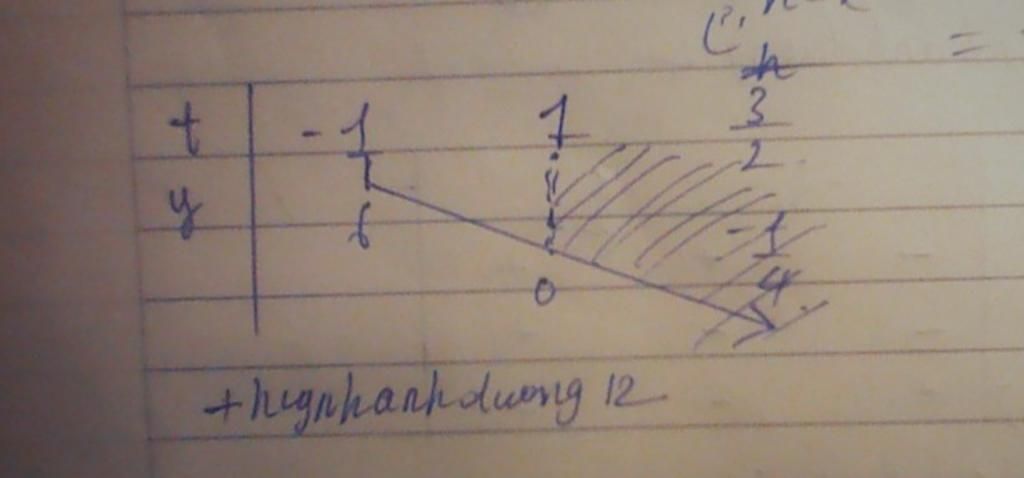 =
t -1 1 3/2
y 6 0 -1/4
+hignhanhduong 12